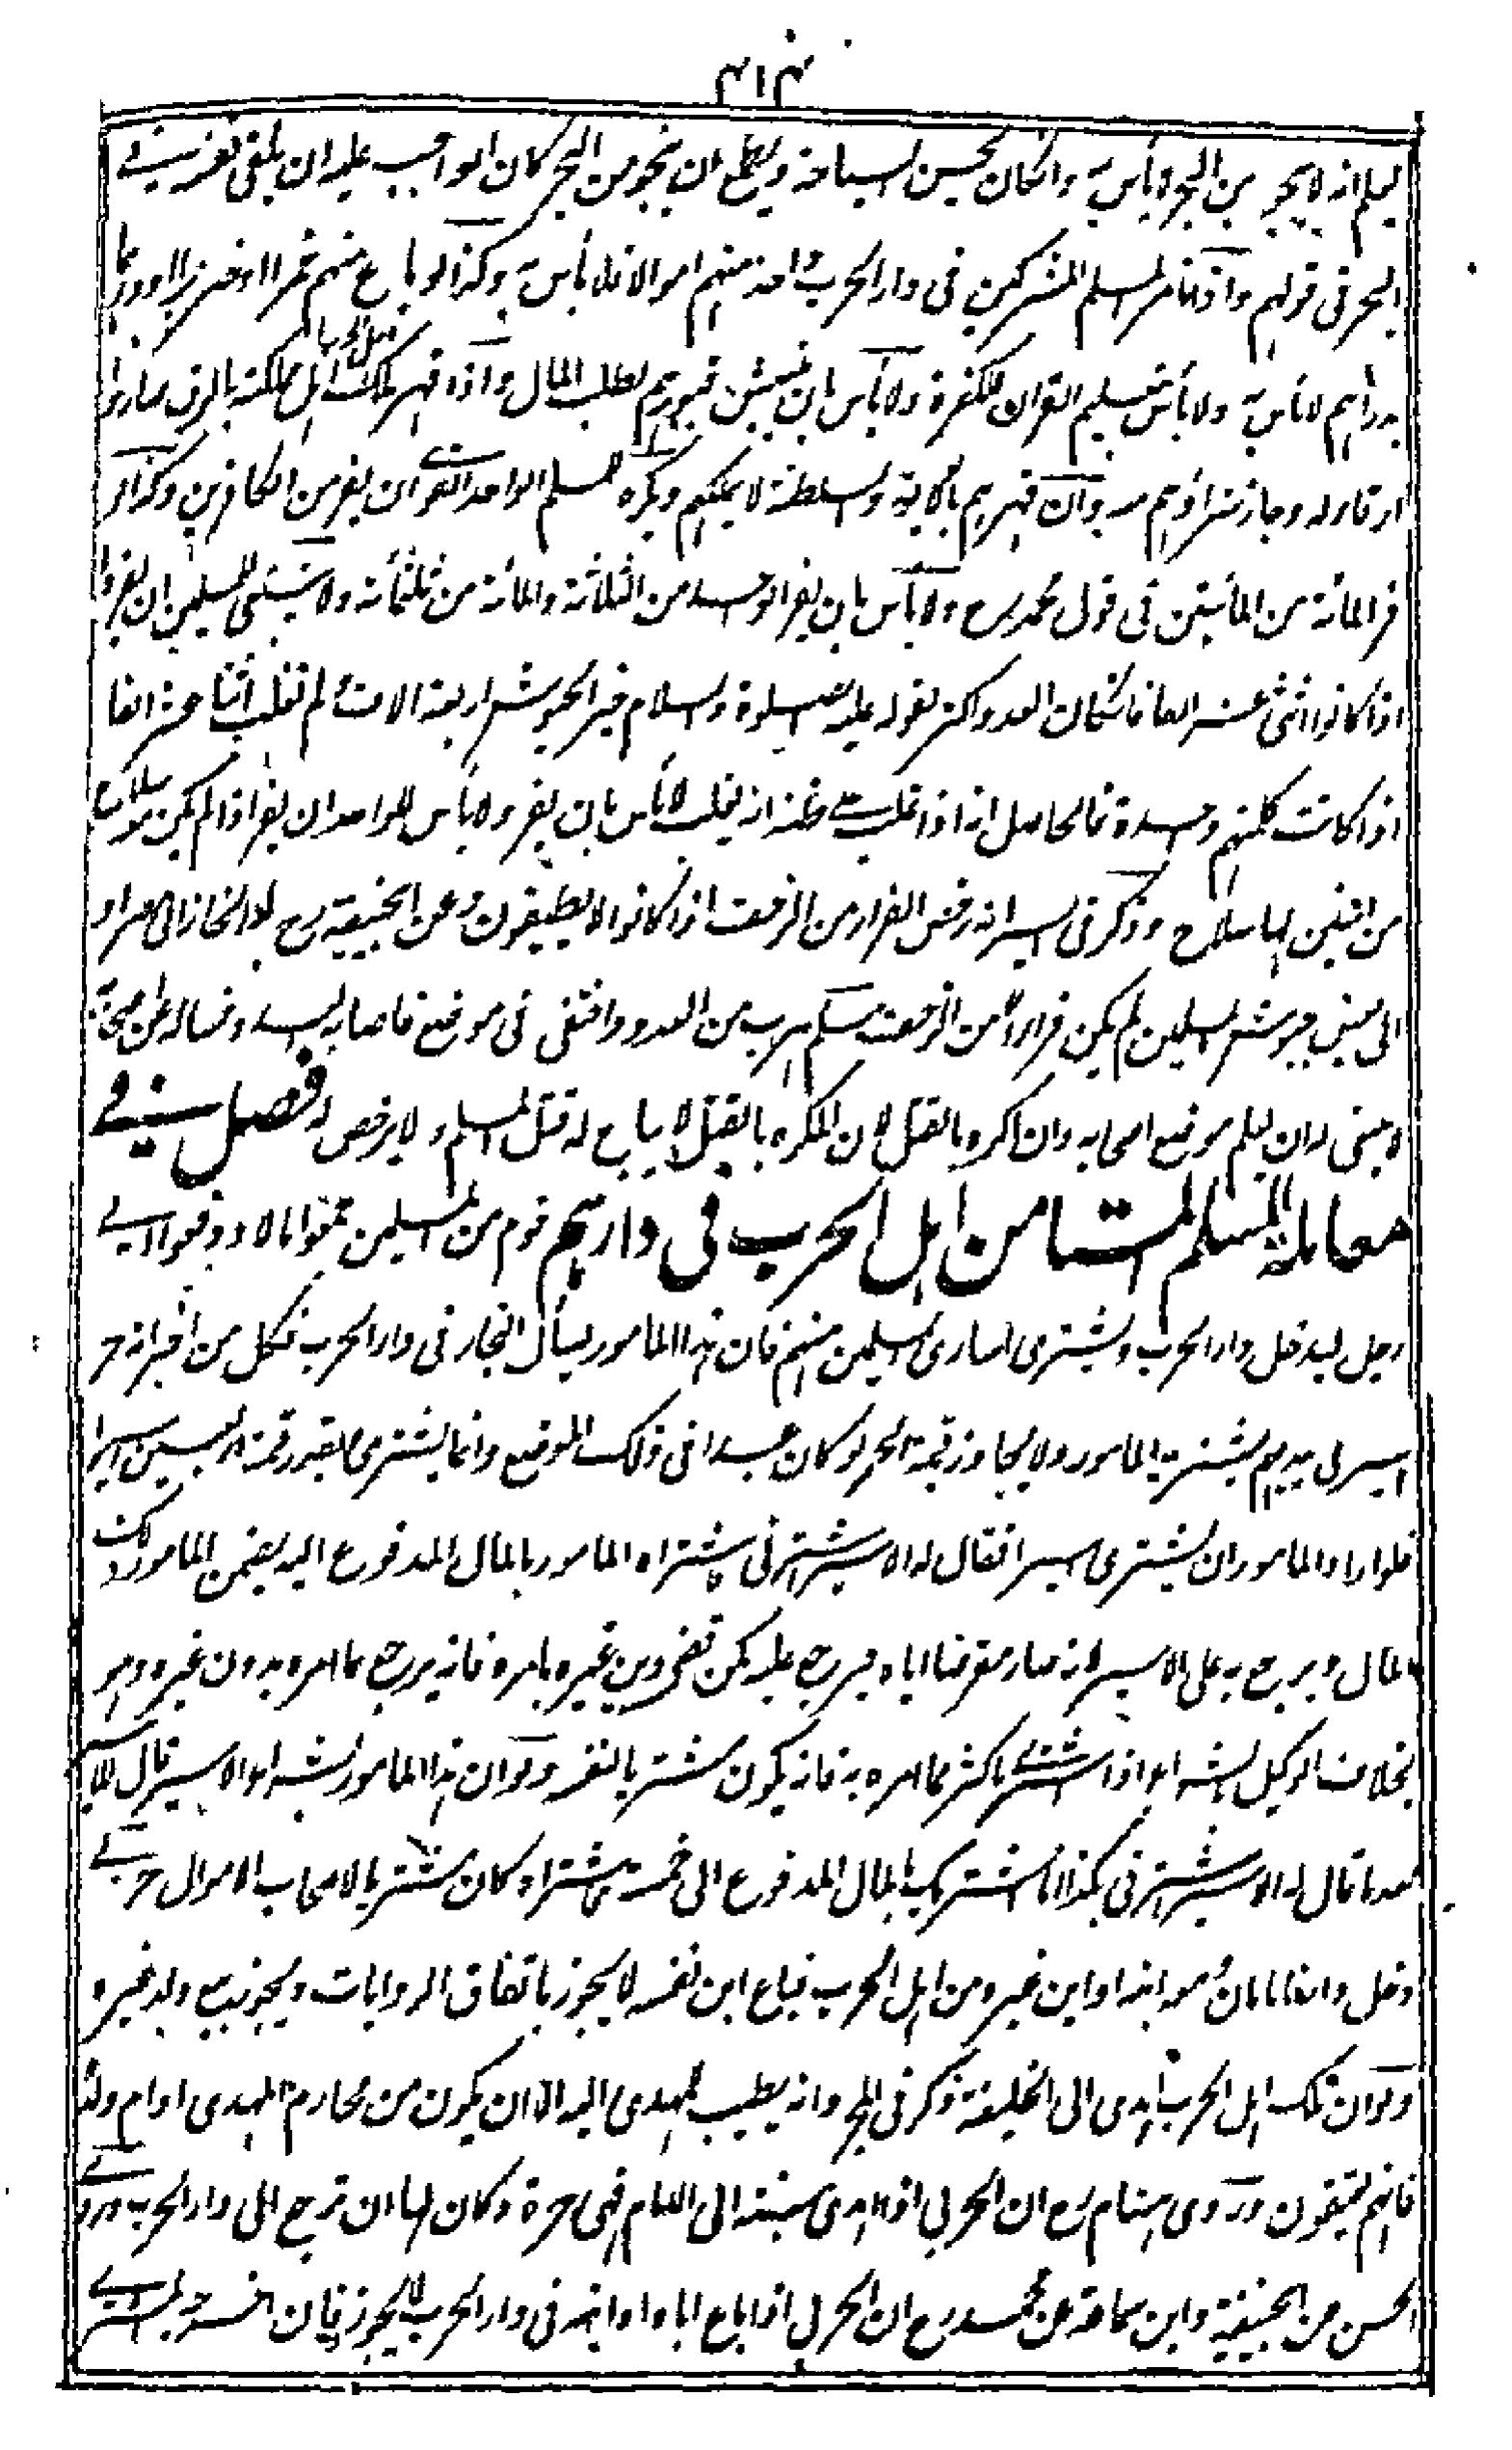 يعلم انه لا ينجو من البحر لا بأس به وان كان يحسن السباحة ويطمع ان ينجو من البحر كان الواجب عليه ان يلقى نفسه في
البحر في قولهم واذا قامر المسلم المشركين في دار الحرب واخذ منهم اموالا فلا بأس به وكذا لو باع منهم خمرا او خنزيرا او درهما
بدراهم لا بأس به ولا بأس بتعليم القران للكفرة ولا بأس بان ينبش قبورهم لطلب المال واذا قهر ملك اهل مملكته بالرق صاروا
ارقاء له وجاز شراؤهم منه وان قهرهم بالولاية والسلطنة لا يملكهم ويكره للمسلم الواحد القوى ان يفر من الكافرين وكذا لو
فر المائة من المأتين في قول محمد رح ولا بأس بان يفر الواحد من الثلاثة والمائة من ثلثمائة ولا ينبغي للمسلمين ان يفروا
اذا كانوا اثنى عشر الفا فان كان العدو اكثر لقوله عليه الصلوة والسلام خير الجيوش اربعة الاف لم تغلب اثنا عشر الفا
اذا كانت كلمتهم واحدة فالحاصل انه اذا غلب على ظنه انه يغلب لا بأس بان يفر ولا بأس للواحد ان يفر اذا لم يكن معه سلاح
من اثنين لهما سلاح وذكر في السير انه رخص الفرار من الزحف اذا كانوا لا يطيقون وعن ابي حنيفة رح
الى جيش من جيوش المسلمين لم يكن فرارا من الزحف مسلم هرب من العدو واختفى في موضع فاصابه العدو وسأله عن اصحابه
لا ينبغي له ان يعلم موضع اصحابه وان اكره بالقتل لان المكره بالقتل لا يباح له قتل المسلم ولا يرخص له فصل في
معاملة المسلم المستامن اهل الحرب في دارهم قوم من المسلمين جمعوا مالا ودفعوا الى
رجل ليدخل دار الحرب ويشترى اسارى المسلمين منهم فان هذا المامور يسأل التجار في دار الحرب فكل من اخبر انه حر
اسير في يديهم يشتريه المامور ولا يجاوز قيمة الحر لو كان عبدا في ذلك الموضع وانما يشترى بقدر قيمته
فلو اراد المامور ان يشترى اسيرا فقال له الاسير اشترني فاشتراه المامور بالمال المدفوع اليه يضمن المامور ذلك
المال ويرجع به على الاسير لانه صار مقرضا اياه فيرجع عليه كمن قضى دين غيره بامره فانه يرجع بما امره بدون غيره وهو
بخلاف الوكيل بالشراء اذا اشترى باكثر مما امره به فانه يكون مشتريا لنفسه ولو ان هذا المامور بشراء الاسير قال للاسير
بعد ما قال له الاسير اشترني بكذا انا اشتريك بالمال المدفوع الى حسبة فاشتراه كان مشتريا لاصحاب الاموال حربي
دخل دارنا بامان ومعه ابنه او ابن غيره من اهل الحرب فباع ابن نفسه لا يجوز باتفاق الروايات ويجوز بيع ولد غيره
ولو ان ملك اهل الحرب اهدى الى الخليفة ذكر في المجرد انه يطيب للمهدى اليه الا ان يكون من محارم المهدى او ام ولد
فانهم يعتقون وروى هشام رح ان الحربي اذا اهدى بنته الى الامام فهي حرة وكان لها ان ترجع الى دار الحرب وروى
الحسن عن ابي حنيفة وابن سماعة عن محمد رح ان الحربي اذا باع اباه او ابنه في دار الحرب لا يجوز فان اخرجه المشترى